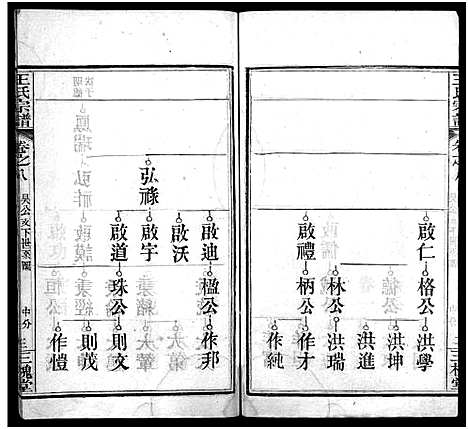 啟仁
啟禮
格公
林公
柄公
洪學
洪坤
洪進
洪瑞
作才
作純
弘祿
啟迪
啟沃
啟宇
啟道
楹公
珠公
作邦
則文
則茂
作愷
王氏宗譜
卷之八
吳公支下世系圖
中分
三槐堂